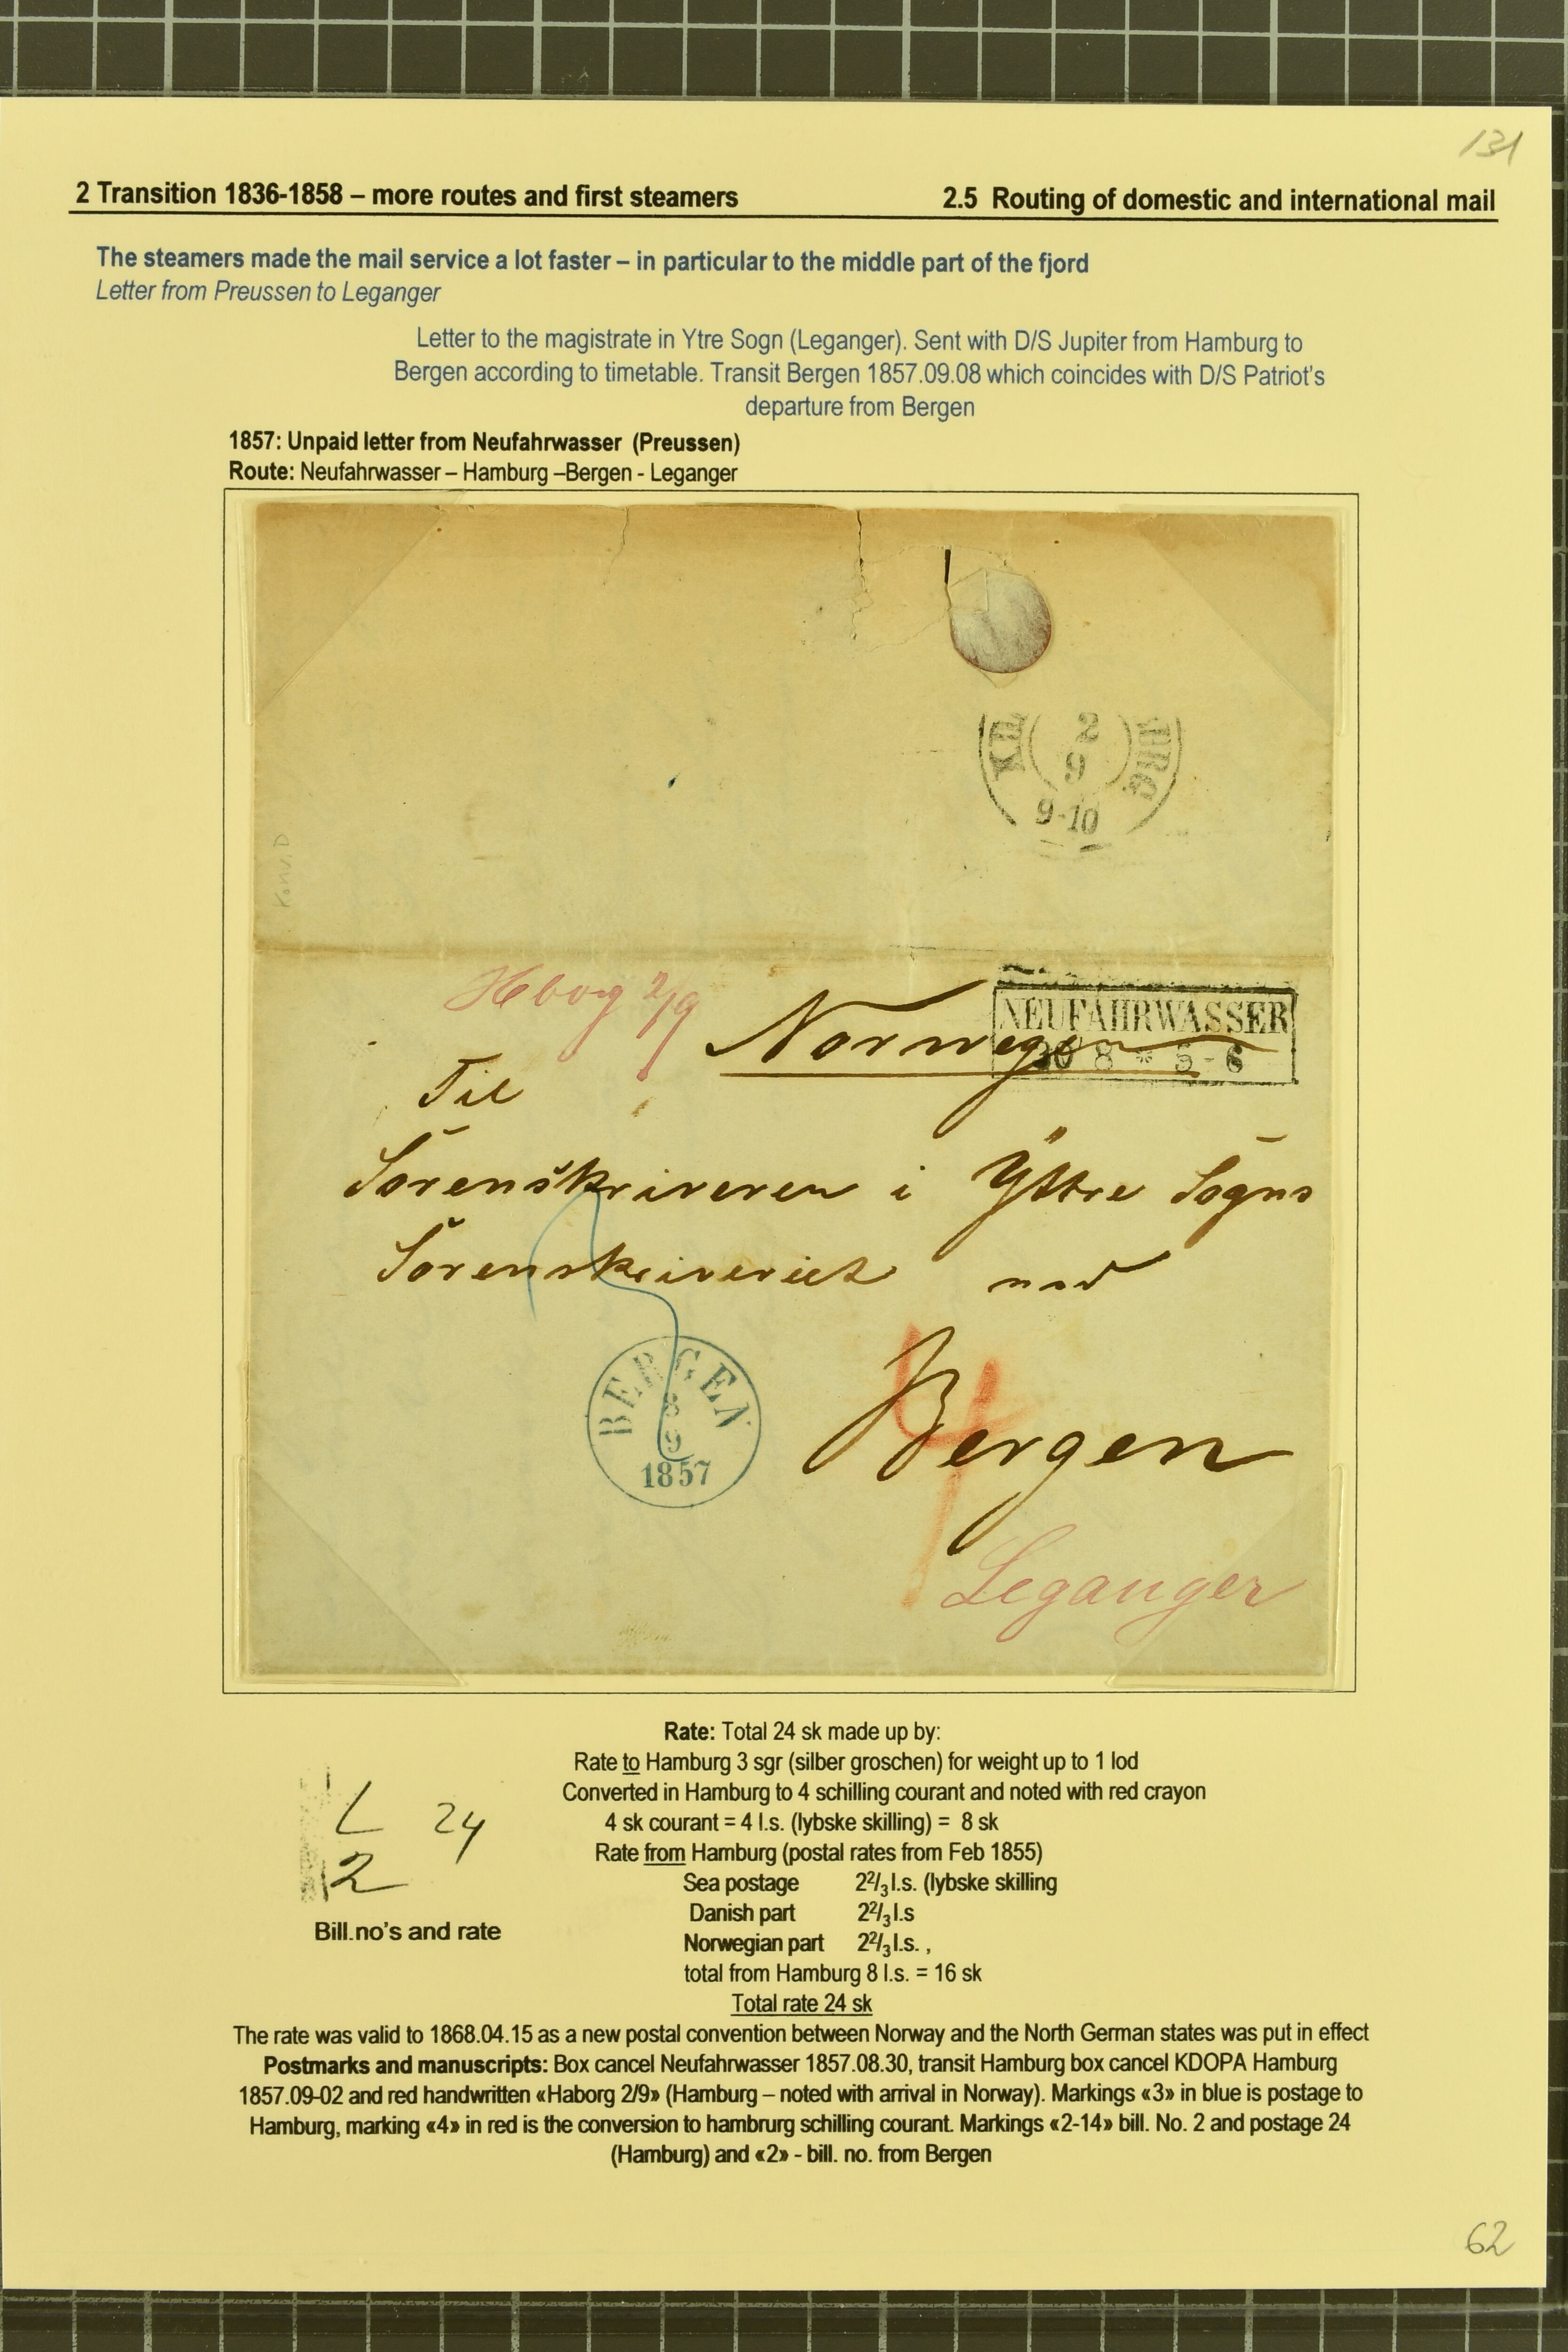 131
2 Transition 1836-1858 – more routes and first steamers 2.5 Routing of domestic and international mail
The steamers made the mail service a lot faster – in particular to the middle part of the fjord
Letter from Preussen to Leganger
Letter to the magistrate in Ytre Sogn (Leganger). Sent with D/S Jupiter from Hamburg to
Bergen according to timetable. Transit Bergen 1857.09.08 which coincides with D/S Patriot's
departure from Bergen
1857: Unpaid letter from Neufahrwasser (Preussen)
Route: Neufahrwasser – Hamburg –Bergen - Leganger
2
9
9-10
Konv. D
Hborg 2/9
Norwegen
NEUFAHRWASSER
30 8 * 5-6
Til
Sorenskriveren i Yttre Sogns
Sorenskriveriet
BERGEN
8
9
1857
4
Bergen
Leganger
L 24
2
Bill.no's and rate
Rate: Total 24 sk made up by:
Rate to Hamburg 3 sgr (silber groschen) for weight up to 1 lod
Converted in Hamburg to 4 schilling courant and noted with red crayon
4 sk courant = 4 l.s. (lybske skilling) = 8 sk
Rate from Hamburg (postal rates from Feb 1855)
Sea postage 2²/₃ l.s. (lybske skilling
Danish part 2²/₃ l.s
Norwegian part 2²/₃ l.s. ,
total from Hamburg 8 l.s. = 16 sk
Total rate 24 sk
The rate was valid to 1868.04.15 as a new postal convention between Norway and the North German states was put in effect
Postmarks and manuscripts: Box cancel Neufahrwasser 1857.08.30, transit Hamburg box cancel KDOPA Hamburg
1857.09-02 and red handwritten «Haborg 2/9» (Hamburg – noted with arrival in Norway). Markings «3» in blue is postage to
Hamburg, marking «4» in red is the conversion to hambrurg schilling courant. Markings «2-14» bill. No. 2 and postage 24
(Hamburg) and «2» - bill. no. from Bergen
62